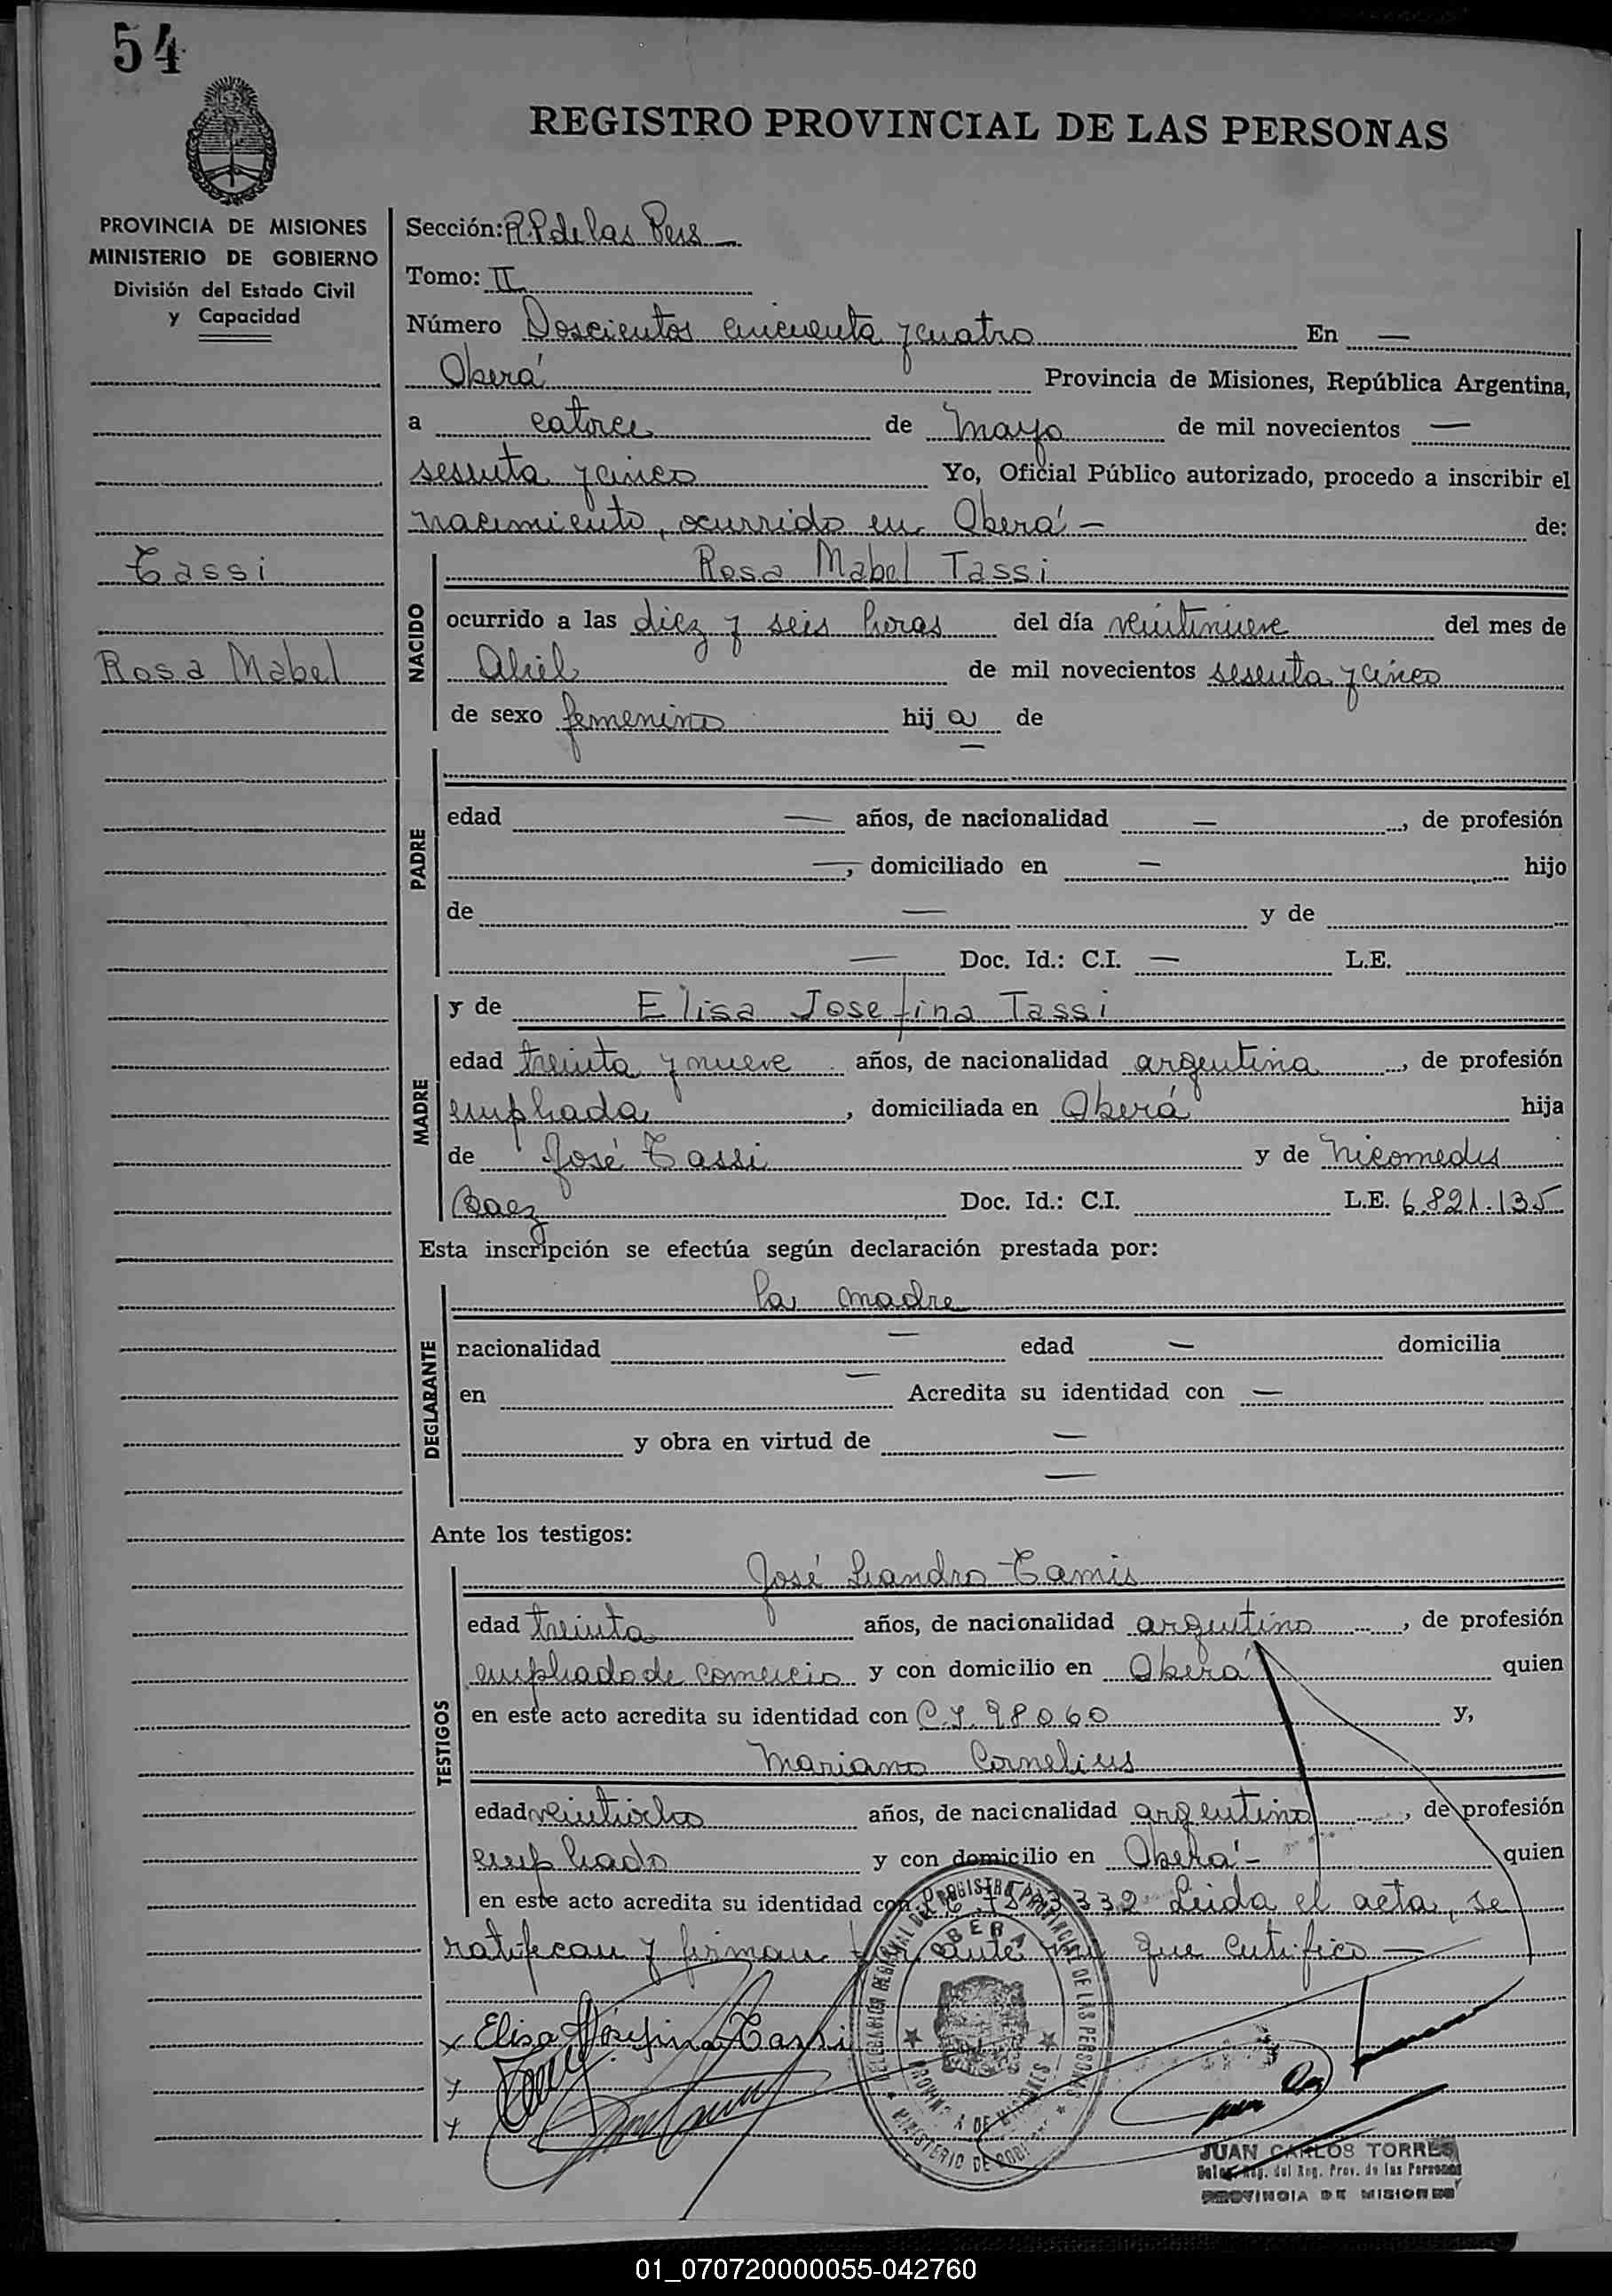 54
REGISTRO PROVINCIAL DE LAS PERSONAS
PROVINCIA DE MISIONES
MINISTERIO DE GOBIERNO
División del Estado Civil
y Capacidad
Tassi
Rosa Mabel
Sección: R.P. de las Pers —
Tomo: II
Número Doscientos cincuenta y cuatro En —
Oberá Provincia de Misiones, República Argentina,
a catorce de Mayo de mil novecientos —
sesenta y cinco Yo, Oficial Público autorizado, procedo a inscribir el
nacimiento, ocurrido en Oberá — de:
NACIDO
Rosa Mabel Tassi
ocurrido a las diez y seis horas del día veintinueve del mes de
Abril de mil novecientos sesenta y cinco
de sexo femenino hij a de
PADRE
—
edad — años, de nacionalidad —, de profesión
—, domiciliado en — hijo
de — y de
— Doc. Id.: C.I. — L.E.
MADRE
y de Elisa Josefina Tassi
edad treinta y nueve años, de nacionalidad argentina, de profesión
empleada, domiciliada en Oberá hija
de José Tassi y de Nicomedes
Baez Doc. Id.: C.I. L.E. 6.821.135
Esta inscripción se efectúa según declaración prestada por:
DECLARANTE
la madre
nacionalidad — edad — domicilia
en — Acredita su identidad con —
y obra en virtud de —
—
Ante los testigos:
TESTIGOS
José Leandro Tamis
edad treinta años, de nacionalidad argentino, de profesión
empleado de comercio y con domicilio en Oberá quien
en este acto acredita su identidad con C.I. 98060 y,
Mariano Cornelius
edad veintiocho años, de nacionalidad argentino, de profesión
empleado y con domicilio en Oberá — quien
en este acto acredita su identidad con Leida el acta, se
ratifican y firman por ante mi que certifico —
x Elisa Josefina Tassi
DELEGACION REGIONAL DEL REGISTRO PROVINCIAL DE LAS PERSONAS
OBERA
PROVINCIA DE MISIONES
MINISTERIO DE GOBIERNO
JUAN CARLOS TORRES
Deleg. Reg. del Reg. Prov. de las Personas
PROVINCIA DE MISIONES
01_070720000055-042760